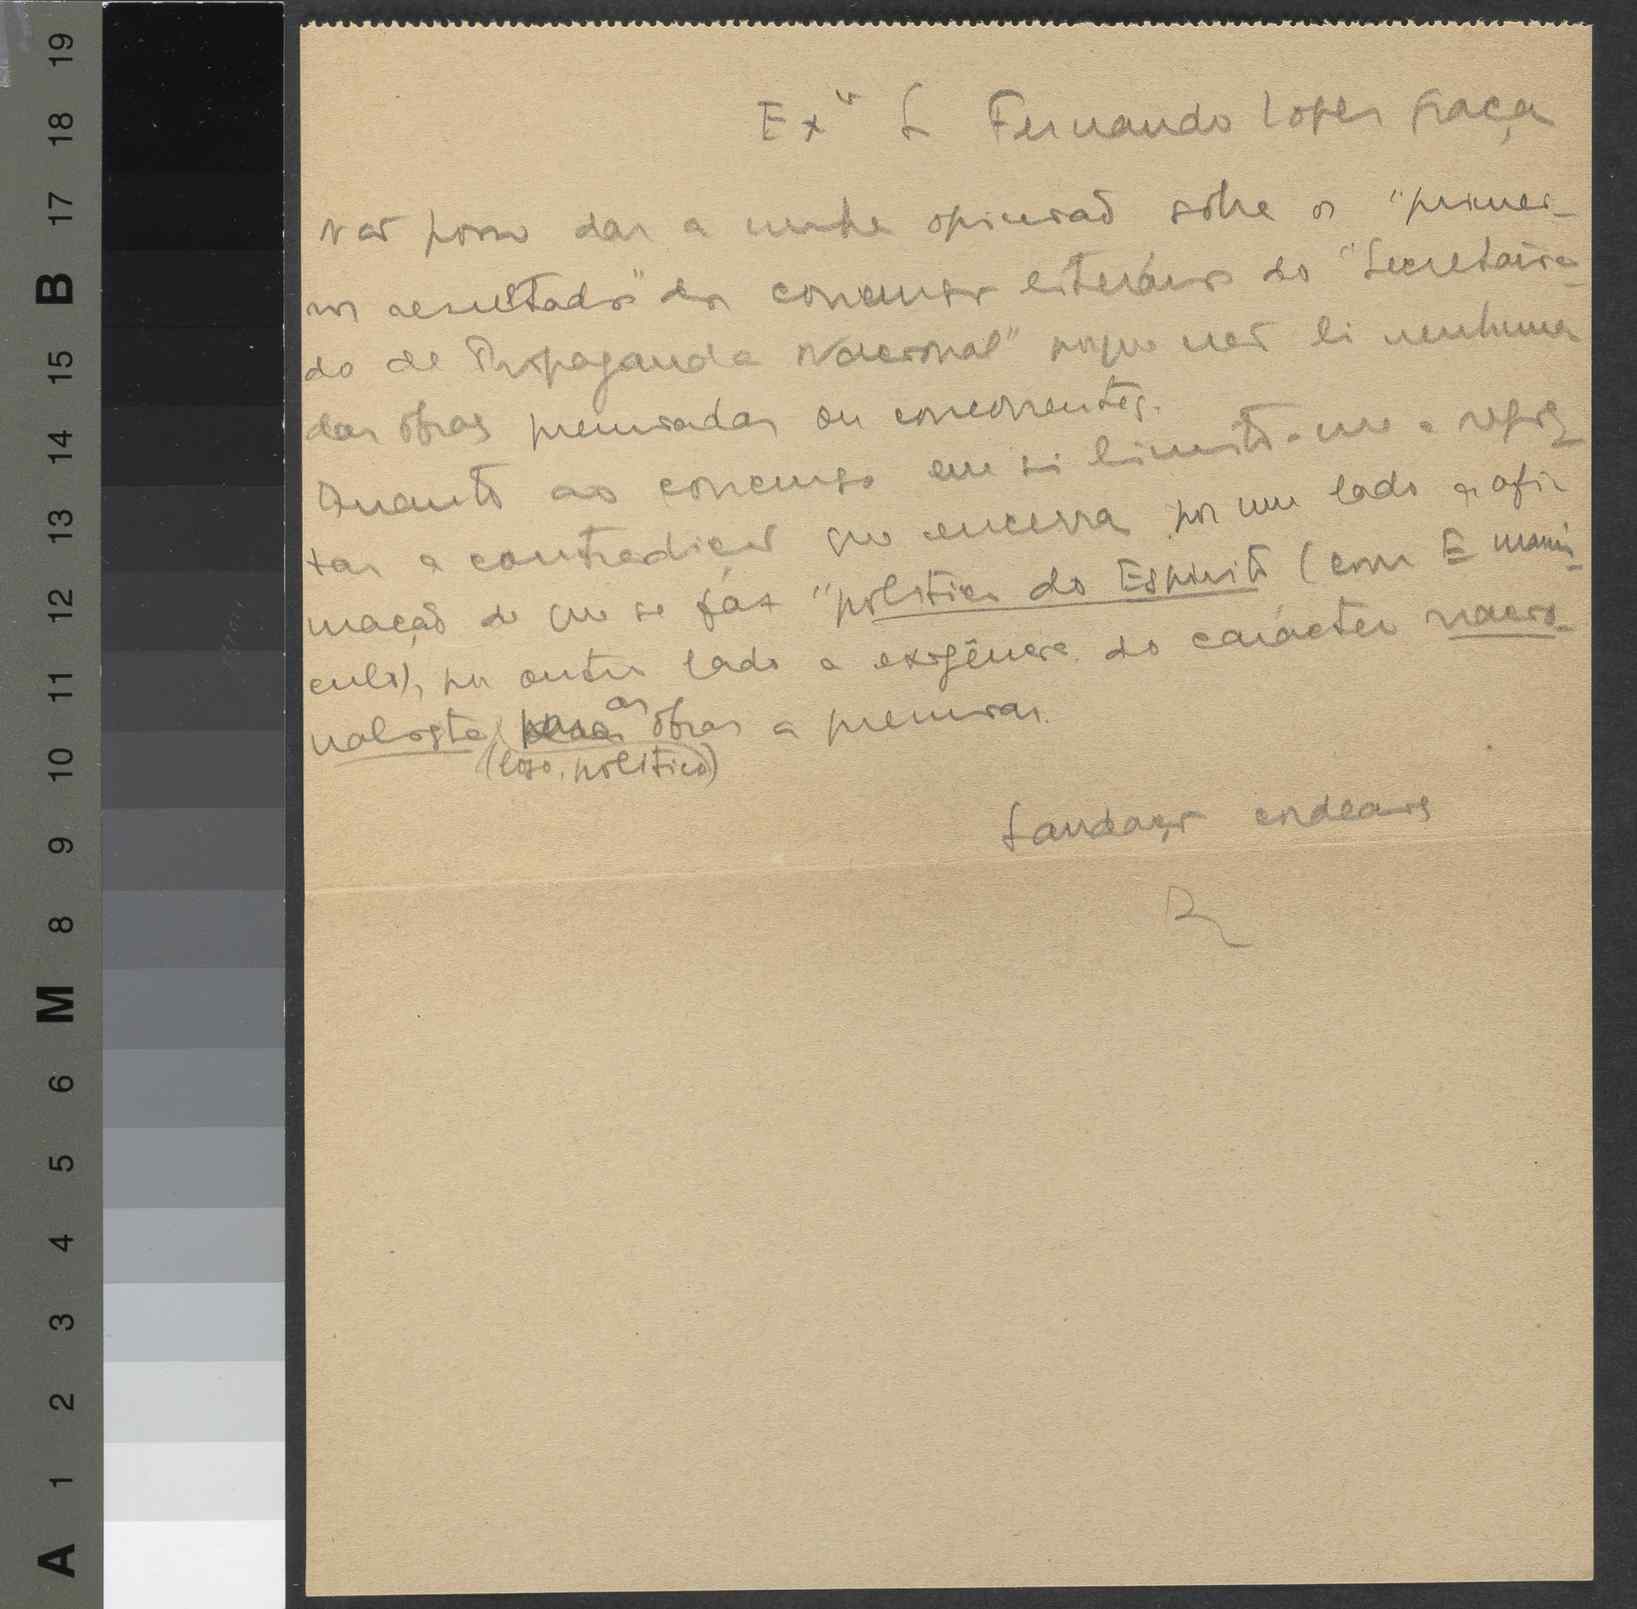 Ex^mo Sr Fernando Lopes Graça
Não posso dar a minha opinião sôbre os "primei-
ros resultados" dos concursos literários do "Secretaria-
do de Propaganda Nacional" porque não li nenhuma
das obras premiadas ou concorrentes.
Quanto ao concurso em si limito-me a regis
tar a contradição que encerra por um lado a afir
mação de que se fáz "política do Espírito (com E maiús-
culo), por outro lado a exigência do carácter nacio-
nalista as obras a premiar.
(logo, político)
Saudações cordeais
19
18
17
B
15
14
13
12
11
10
9
8
M
6
5
4
3
2
1
A